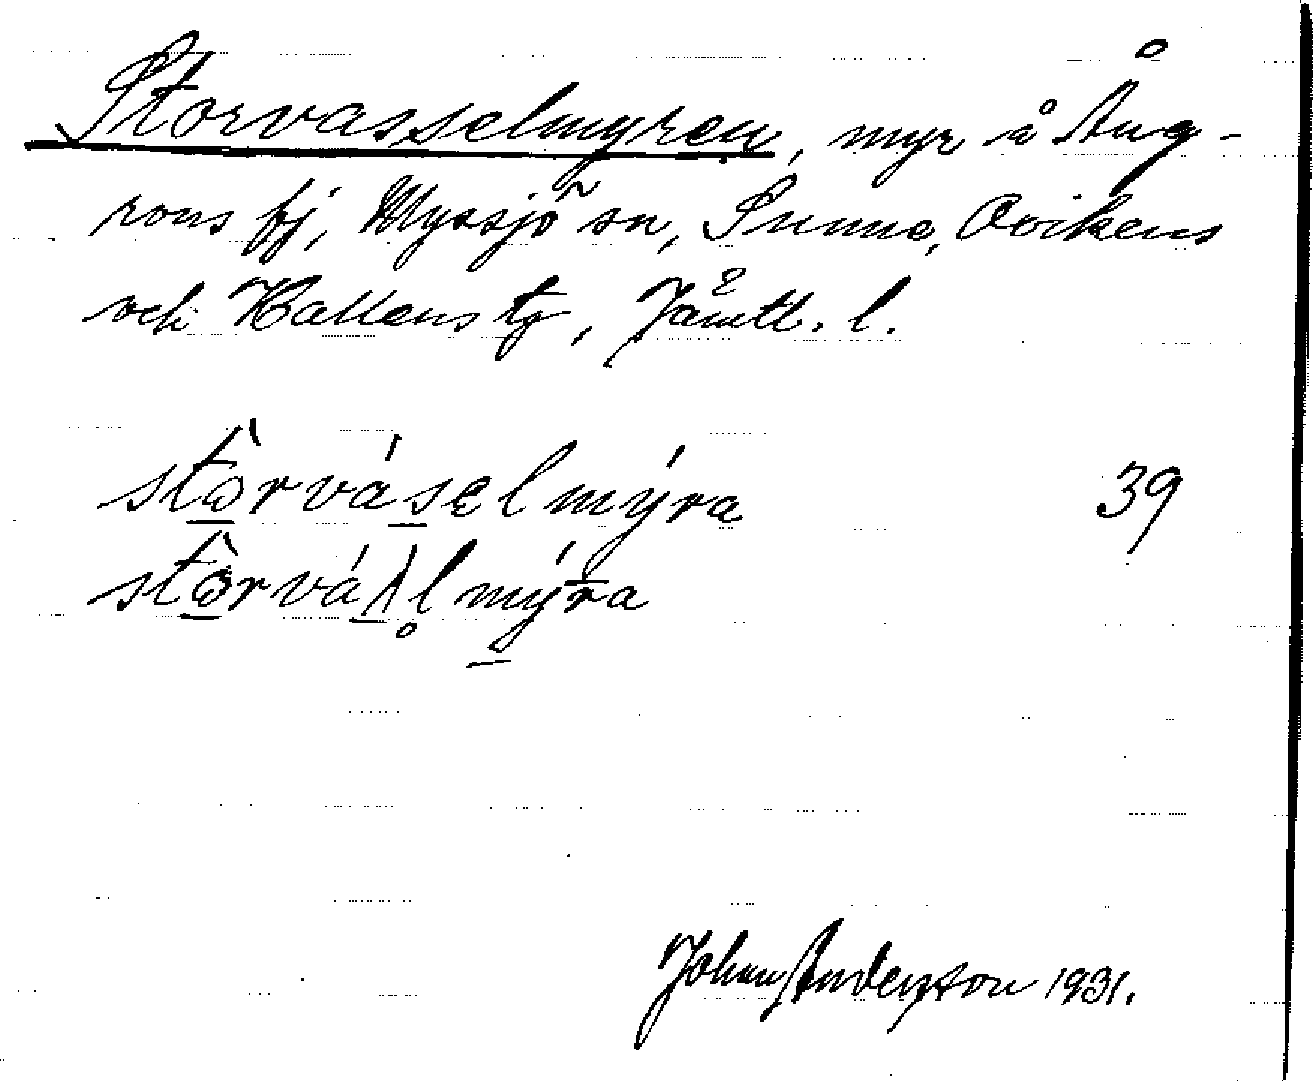 Storvasselmyren, myr å Ång-
rons fj, Myssjö sn, Sunne, Ovikens
och Hallens tg, Jämtl. l.
stωrvásɛlmýra 39
mýra
Johan Anderson 1931.